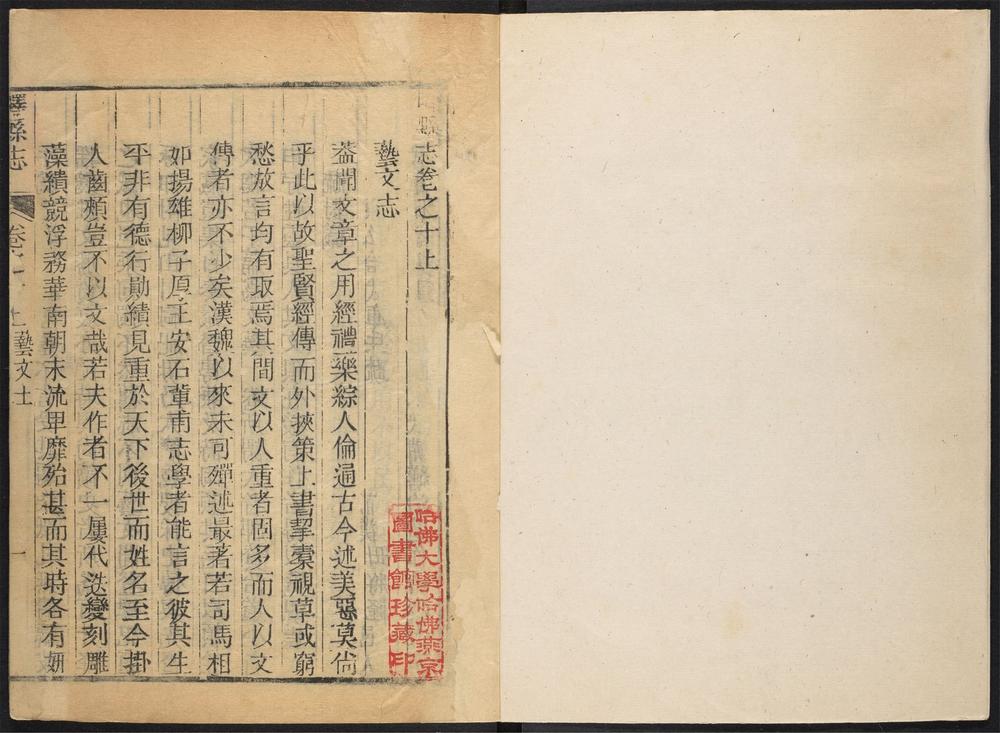 縣志卷之十上
藝文志
蓋聞文章之用經禮樂綜人倫通古今述美惡莫尚
乎此以故聖賢經傳而外挾策上書挈橐視草或窮
愁放言均有取焉其間文以人重者固多而人以文
傳者亦不少矣漢魏以來未可殫述最著若司馬相
如揚雄柳子厚王安石輩甫志學者能言之彼其生
平非有德行勛績見重於天下後世而姓名至今掛
人齒頰豈不以文哉若夫作者不一屢代迭變刻雕
藻繢競浮務華南朝末流卑靡殆甚而其時各有妍
縣志
卷
藝文上
一
哈佛大學哈佛燕京
圖書館珍藏印